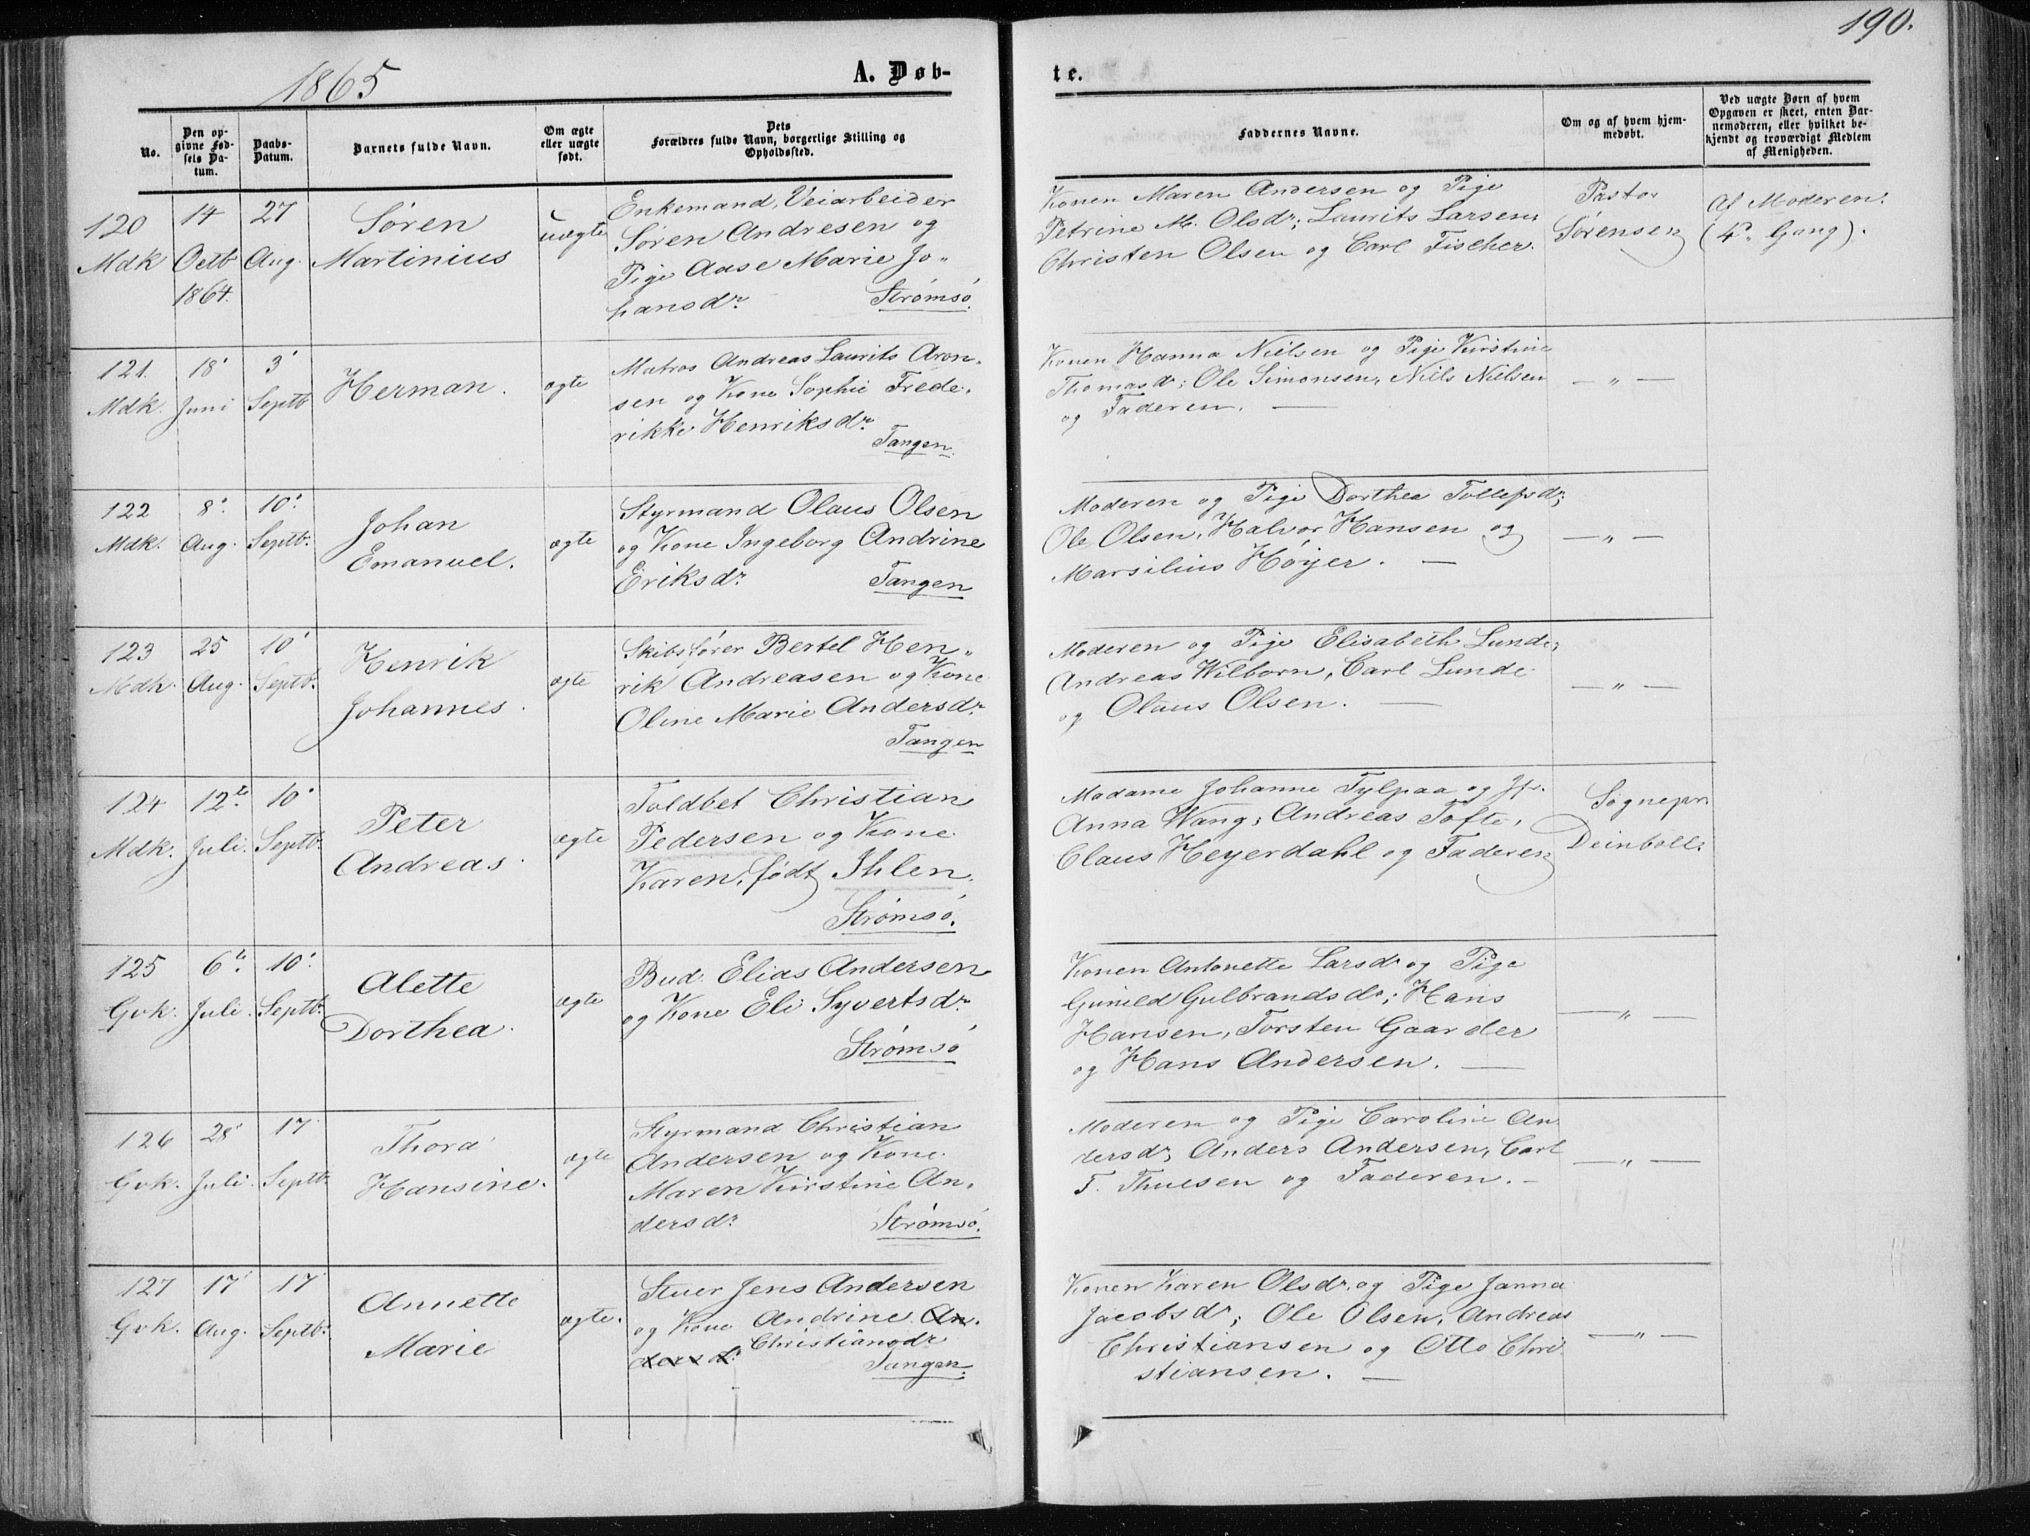 190.
1865
A. Døb-
te.
No.
Den op-
givne Fød-
sels Da-
tum.
Daabs-
Datum.
Barnets fulde Navn.
Om ægte
eller uægte
født.
Dets
Forældres fulde Navn, borgerlige Stilling og
Opholdssted.
Faddernes Navne.
Om og af hvem hjem-
medøbt.
Ved uægte Børn af hvem
Opgaven er skeet, enten Bar-
nemoderen, eller hvilket be-
kjendt og troværdigt Medlem
af Menigheden.
120
Mdk
14
Octb
1864.
27
Aug.
Søren
Martinius
uægte
Enkemand, Veiarbeider
Søren Andresen og
Pige Aase Marie Jo-
hansdr
Strømsø.
Konen Maren Andersen og Pige
Petrine M. Olsdr; Laurits Larsen,
Christen Olsen og Carl Fischer.
Pastor
Sørensen
Af Moderen.
(4de Gang).
121.
Mdk.
18
Juni
3
Septb
Herman.
ægte
Matros Andreas Laurits Aron-
sen og Kone Sophie Frede-
rikke Henriksdr
Tangen.
Konen Hanna Nielsen og Pige Kirstine
Thomasdr; Ole Simonsen, Niels Nielsen
og Faderen. —
— " —
122
Mdk.
8
Aug.
10
Septbr.
Johan
Emanuel.
ægte
Styrmand Olaus Olsen
og Kone Ingeborg Andrine
Eriksdr
Tangen
Moderen og Pige Dorthea Tollefsdr;
Ole Olsen, Halvor Hansen og
Marsilius Høyer. —
— " —
123
Mdk.
25
Aug.
10
Septbr.
Henrik
Johannes.
ægte
Skibsfører Bertel Hen-
rik Andreasen og Kone
Oline Marie Andersdr
Tangen
Moderen og Pige Elisabeth Lunde,
Andreas Wilborn, Carl Lunde
og Olaus Olsen. —
— " —
124
Mdk.
12te
Juli.
10
Septbr.
Peter
Andreas.
ægte
Toldbet Christian
Pedersen og Kone
Karen, født Ihlen.
Strømsø.
Madame Johanne Fylpaa og Jfr.
Anna Wang; Andreas Tofte,
Claus Heyerdahl og Faderen
Sognepr.
Deinboll.
125
Gvk.
6te
Juli.
10
Septbr.
Alette
Dorthea.
ægte
Bud Elias Andersen
og Kone Eli Syvertsdr
Strømsø
Konen Antonette Larsdr og Pige
Gunild Gulbrandsdr; Hans
Hansen, Torsten Gaarder
og Hans Andersen. —
— " —
126
Gvk.
28
Juli.
17
Septbr.
Thora
Hansine.
ægte
Styrmand Christian
Andersen og Kone
Maren Kirstine An-
dersdr
Strømsø.
Moderen og Pige Caroline An-
dersdr; Anders Andersen, Carl
F. Thuesen og Faderen. —
— " —
127
Gvk.
17
Aug.
17
Septbr.
Annette
Marie
ægte.
Stuer Jens Andersen
og Kone Andrine An-
Christiansdr
dersdr
Tangen
Konen Karen Olsdr og Pige Janna
Jacobsdr; Ole Olsen, Andreas
Christiansen og Otto Chri-
stiansen. —
— " —